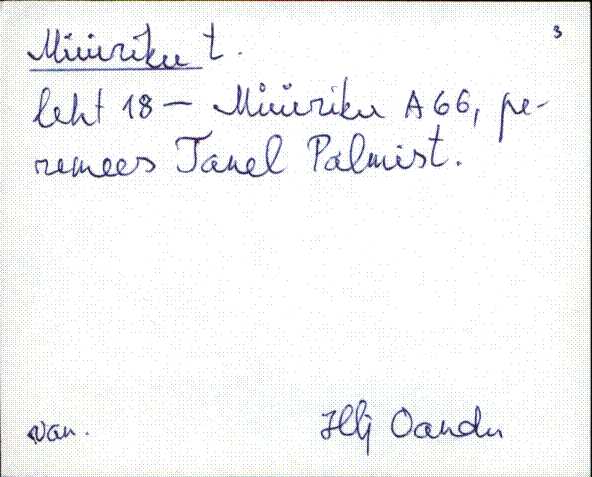 3
Müüriku t.
leht 18 – Müüriku A66, pe-
remees Tanel Palmist.
van.
Hlj Oandu